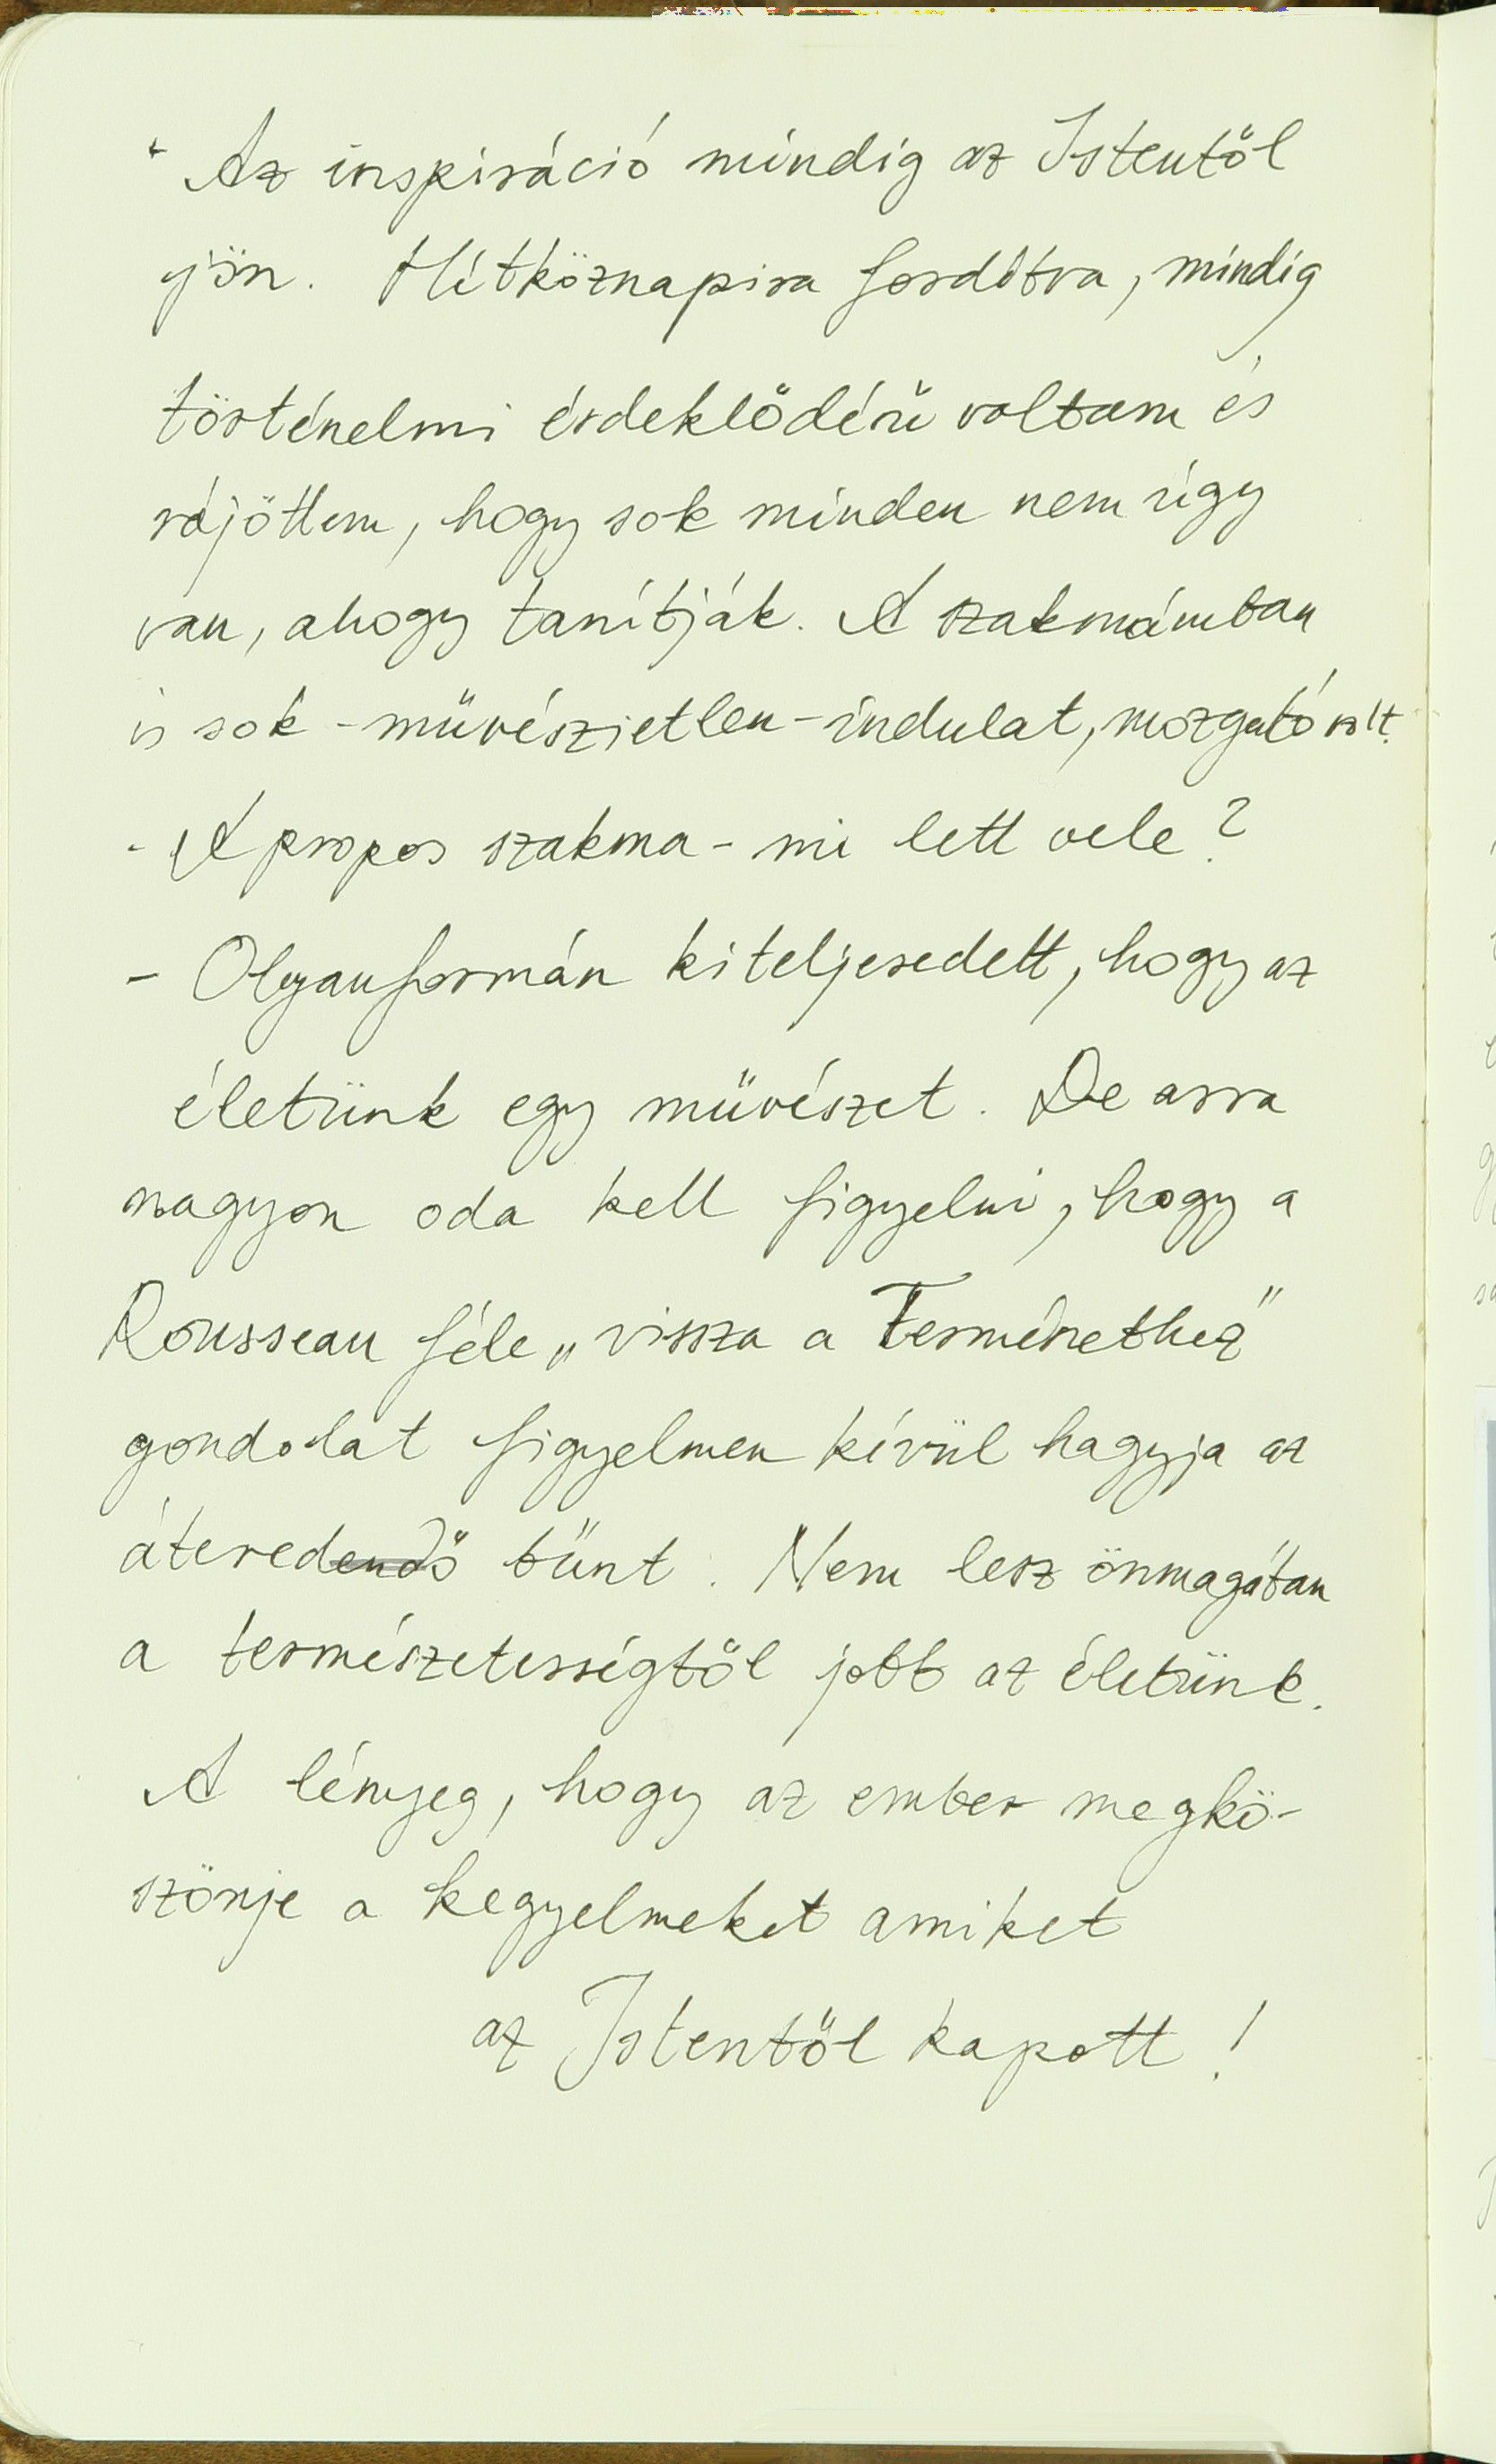 - Az inspiráció mindig az Istentől
jön. Hétköznapira fordítva, mindig
történelmi érdeklődésű voltam és
rájöttem, hogy sok minden nem úgy
van, ahogy tanítják. A szakmámban
is sok - művészietlen - indulat, mozgató volt.
- Apropos szakma - mi lett vele?
- Olyanformán kiteljesedett, hogy az
életünk egy művészet. De arra
nagyon oda kell figyelni, hogy a
Rousseau féle „vissza a Természethez"
gondolat figyelmen kívül hagyja az
áteredendő bűnt. Nem lesz önmagában
a természetességtől jobb az életünk.
A lényeg, hogy az ember megkö-
szönje a kegyelmeket amiket
az Istentől kapott!